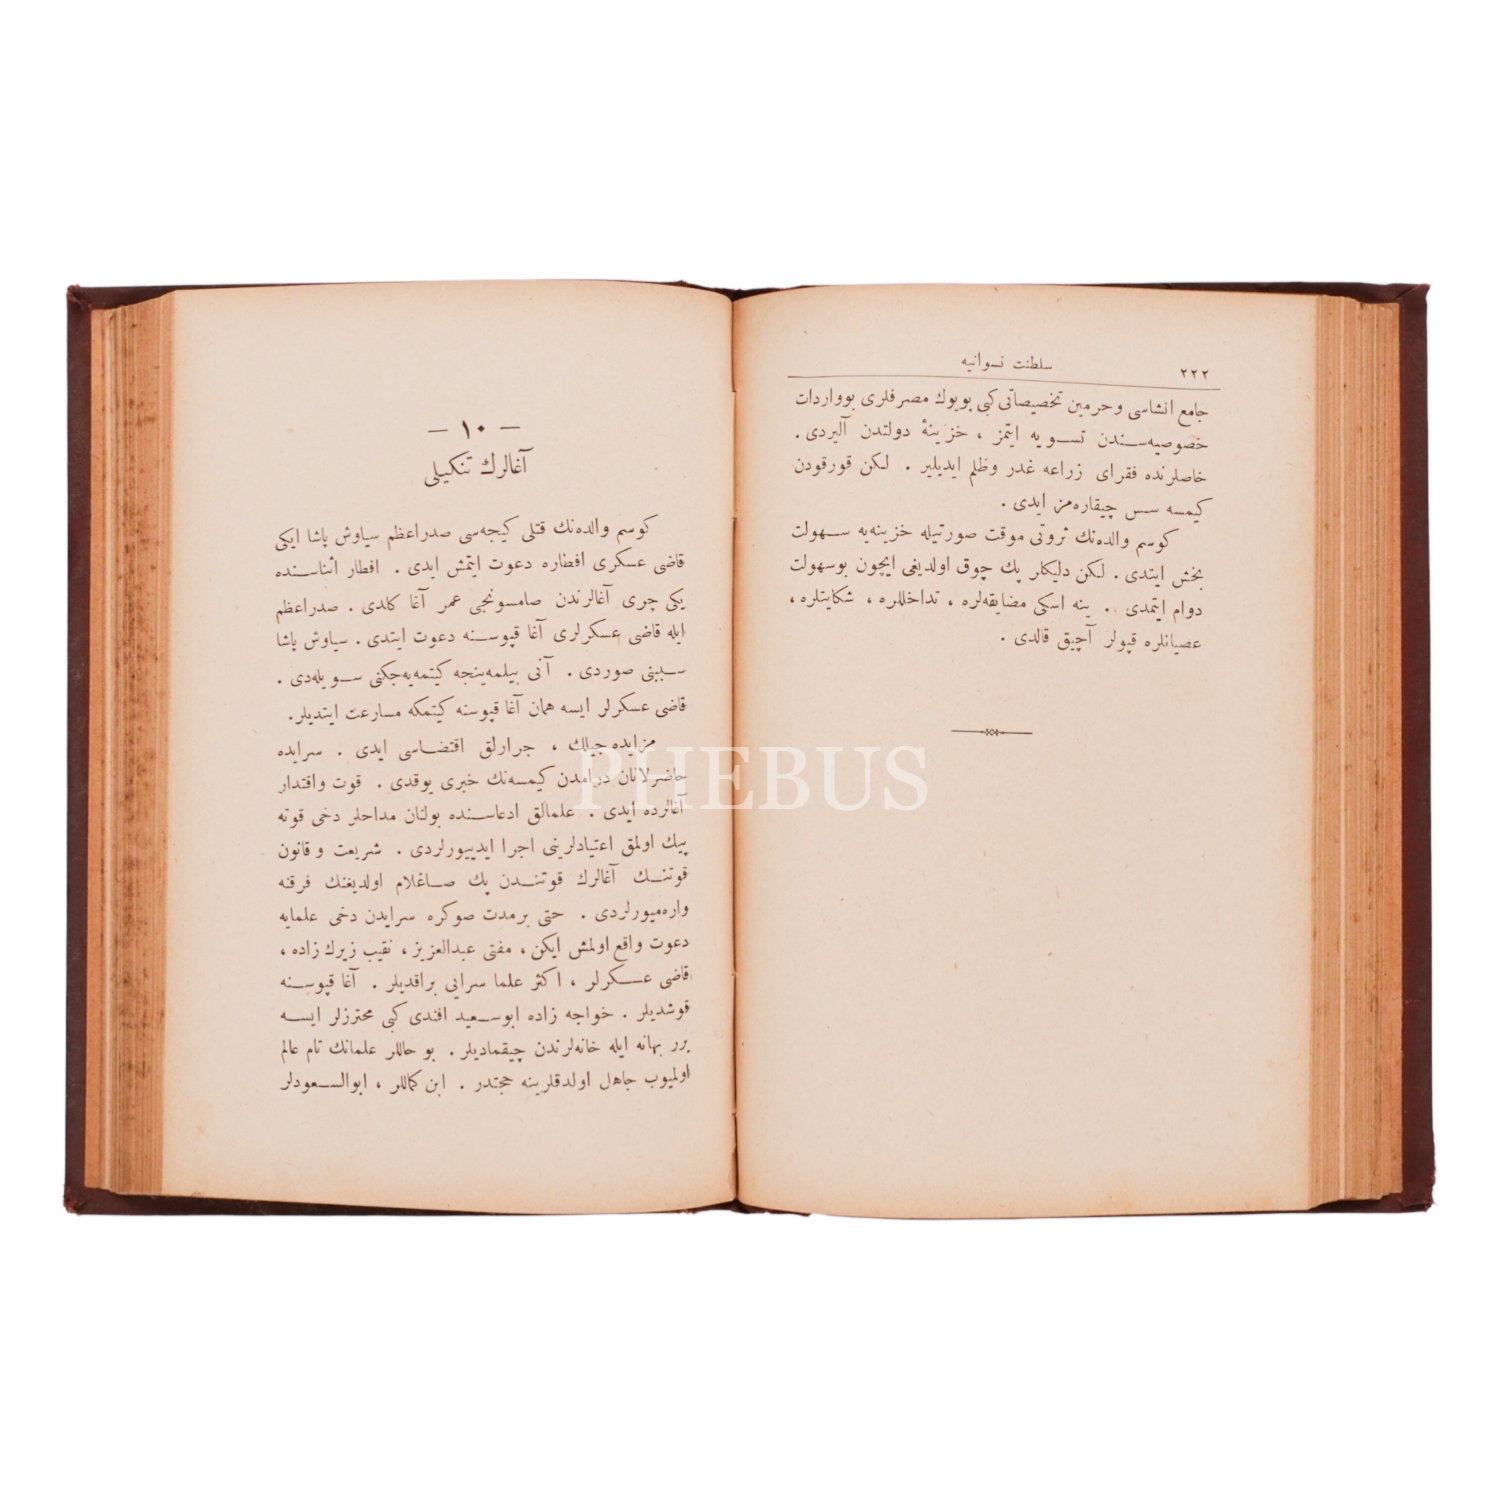 ٢٢٢
سلطنت نسوانیه
جامع انشاسی و حرمین تخصیصاتی کبی بویوك مصرفلری بوواردات
خصوصیه‌سندن تسویه ایتمز ، خزینهٔ دولتدن آلیردی .
خاصلرنده فقرای زراعه غدر وظلم ایدیلیر . لکن قورقودن
کیمسه سس چیقاره‌مز ایدی .
کوسم والده‌نك ثروتی موقت صورتیله خزینه‌یه سهولت
بخش ایتدی . لکن دلیکلر پك چوق اولدیغی ایچون بوسهولت
دوام ایتمدی . ینه اسکی مضایقه‌لره ، تداخللره ، شکایتلره ،
عصیانلره قپولر آچیق قالدی .
— ١٠ —
آغالرك تنکیلی
کوسم والده‌نك قتلی کیجه‌سی صدراعظم سیاوش پاشا ایکی
قاضی عسکری افطاره دعوت ایتمش ایدی . افطار اثناسنده
یکی چری آغالرندن صامسونجی عمر آغا کلدی . صدراعظم
ایله قاضی عسکرلری آغا قپوسنه دعوت ایتدی . سیاوش پاشا
سببنی صوردی . آنی بیلمه‌ینجه کیتمه‌یه‌جکنی سویله‌دی .
قاضی عسکرلر ایسه همان آغا قپوسنه کیتمکه مسارعت ایتدیلر .
مزایده‌جیلك ، جرارلق اقتضاسی ایدی . سرایده
حاضرلانان درامدن کیمسه‌نك خبری یوقدی . قوت واقتدار
آغالرده ایدی . علمالق ادعاسنده بولنان مداحلر دخی قوته
پیك اولمق اعتیادلرینی اجرا ایدییورلردی . شریعت و قانون
قوتنك آغالرك قوتندن پك صاغلام اولدیغنك فرقنه
واره‌میورلردی . حتی برمدت صوکره سرایدن دخی علمایه
دعوت واقع اولمش ایکن ، مفتی عبدالعزیز ، نقیب زیرك زاده ،
قاضی عسکرلر ، اکثر علما سرایی براقدیلر . آغا قپوسنه
قوشدیلر . خواجه زاده ابوسعید افندی کبی محترزلر ایسه
برر بهانه ایله خانه‌لرندن چیقمادیلر . بو حاللر علمانك تام عالم
اولمیوب جاهل اولدقلرینه حجتدر . ابن کماللر ، ابوالسعودلر
PHEBUS